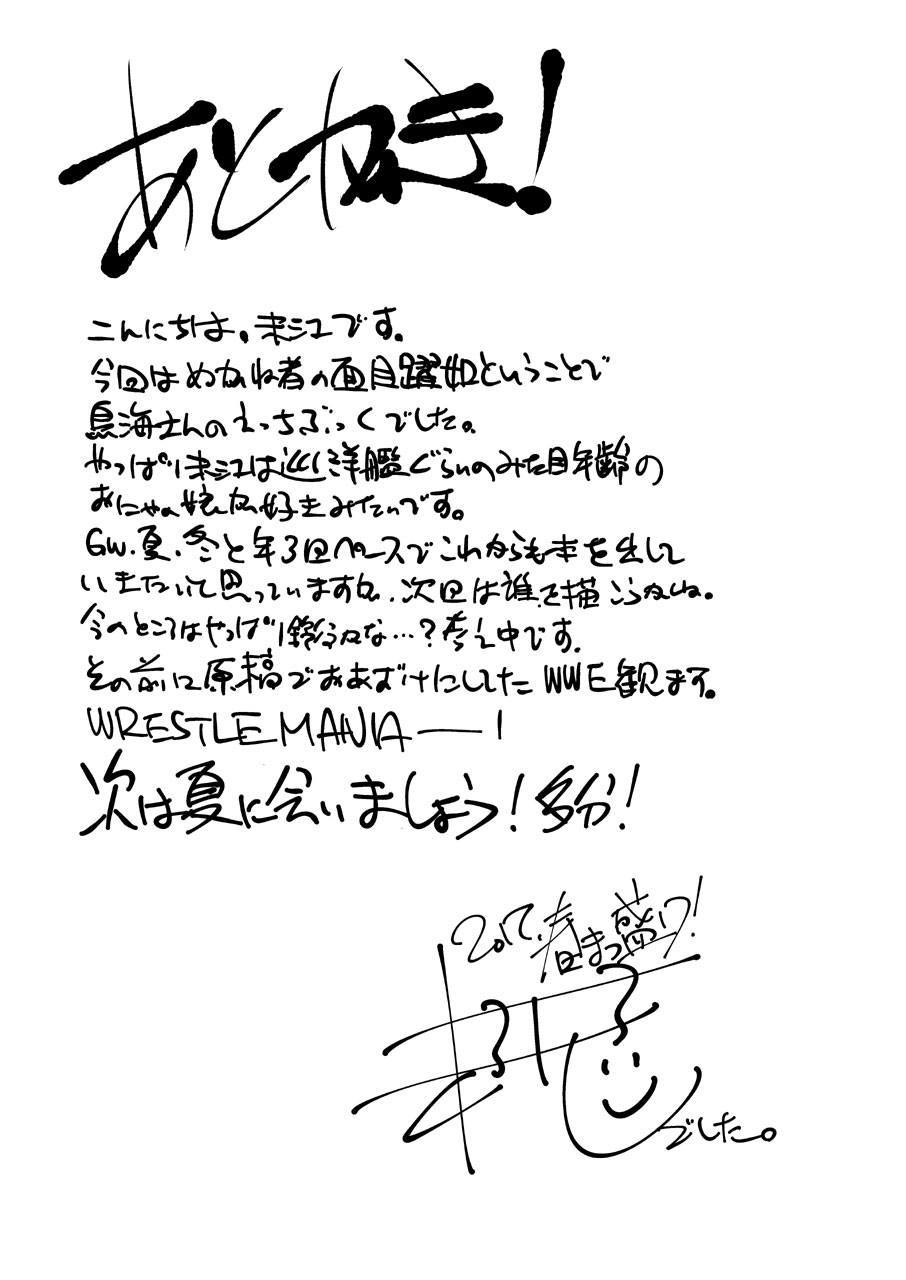 あとがき!
こんにちは。末江です。
今回はめがね者の面目躍如ということで
鳥海さんのえっちぶっくでした。
やっぱり末江は巡洋艦ぐらいのみた目年齢の
おにゃの娘が好きみたいです。
GW、夏、冬と年3回ペースでこれからも本を出して
いきたいって思っていますが、次回は誰を描こうかしね。
今のところはやっぱり鈴谷かな…?考え中です。
その前に原稿でおあずけにしてたWWE観ます。
WRESTLE MANIA――!
次は夏に会いましょう!多分!
2017.春まっ盛り!
でした。